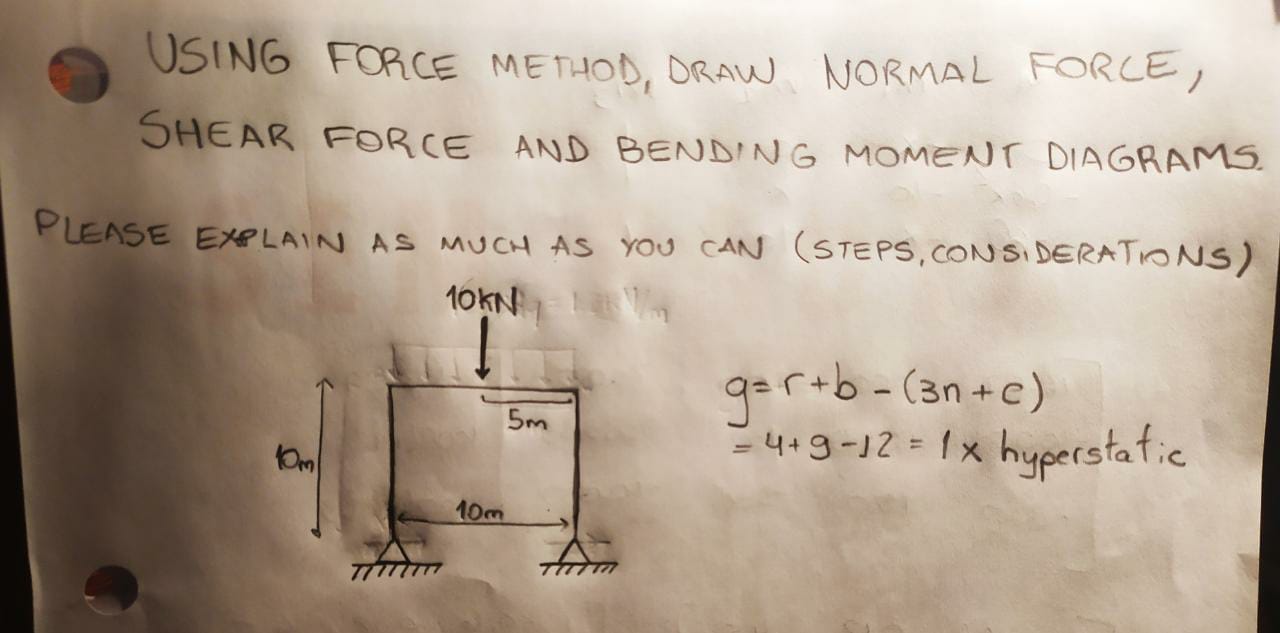 USING FORCE METHOD, DRAW NORMAL FORCE,
SHEAR FORCE AND BENDING MOMENT DIAGRAMS.
PLEASE EXPLAIN AS MUCH AS YOU CAN (STEPS, CONSIDERATIONS)
10KN
5m
10m
10m
g=r+b-(3n+c)
=4+9-12=1x hyperstatic